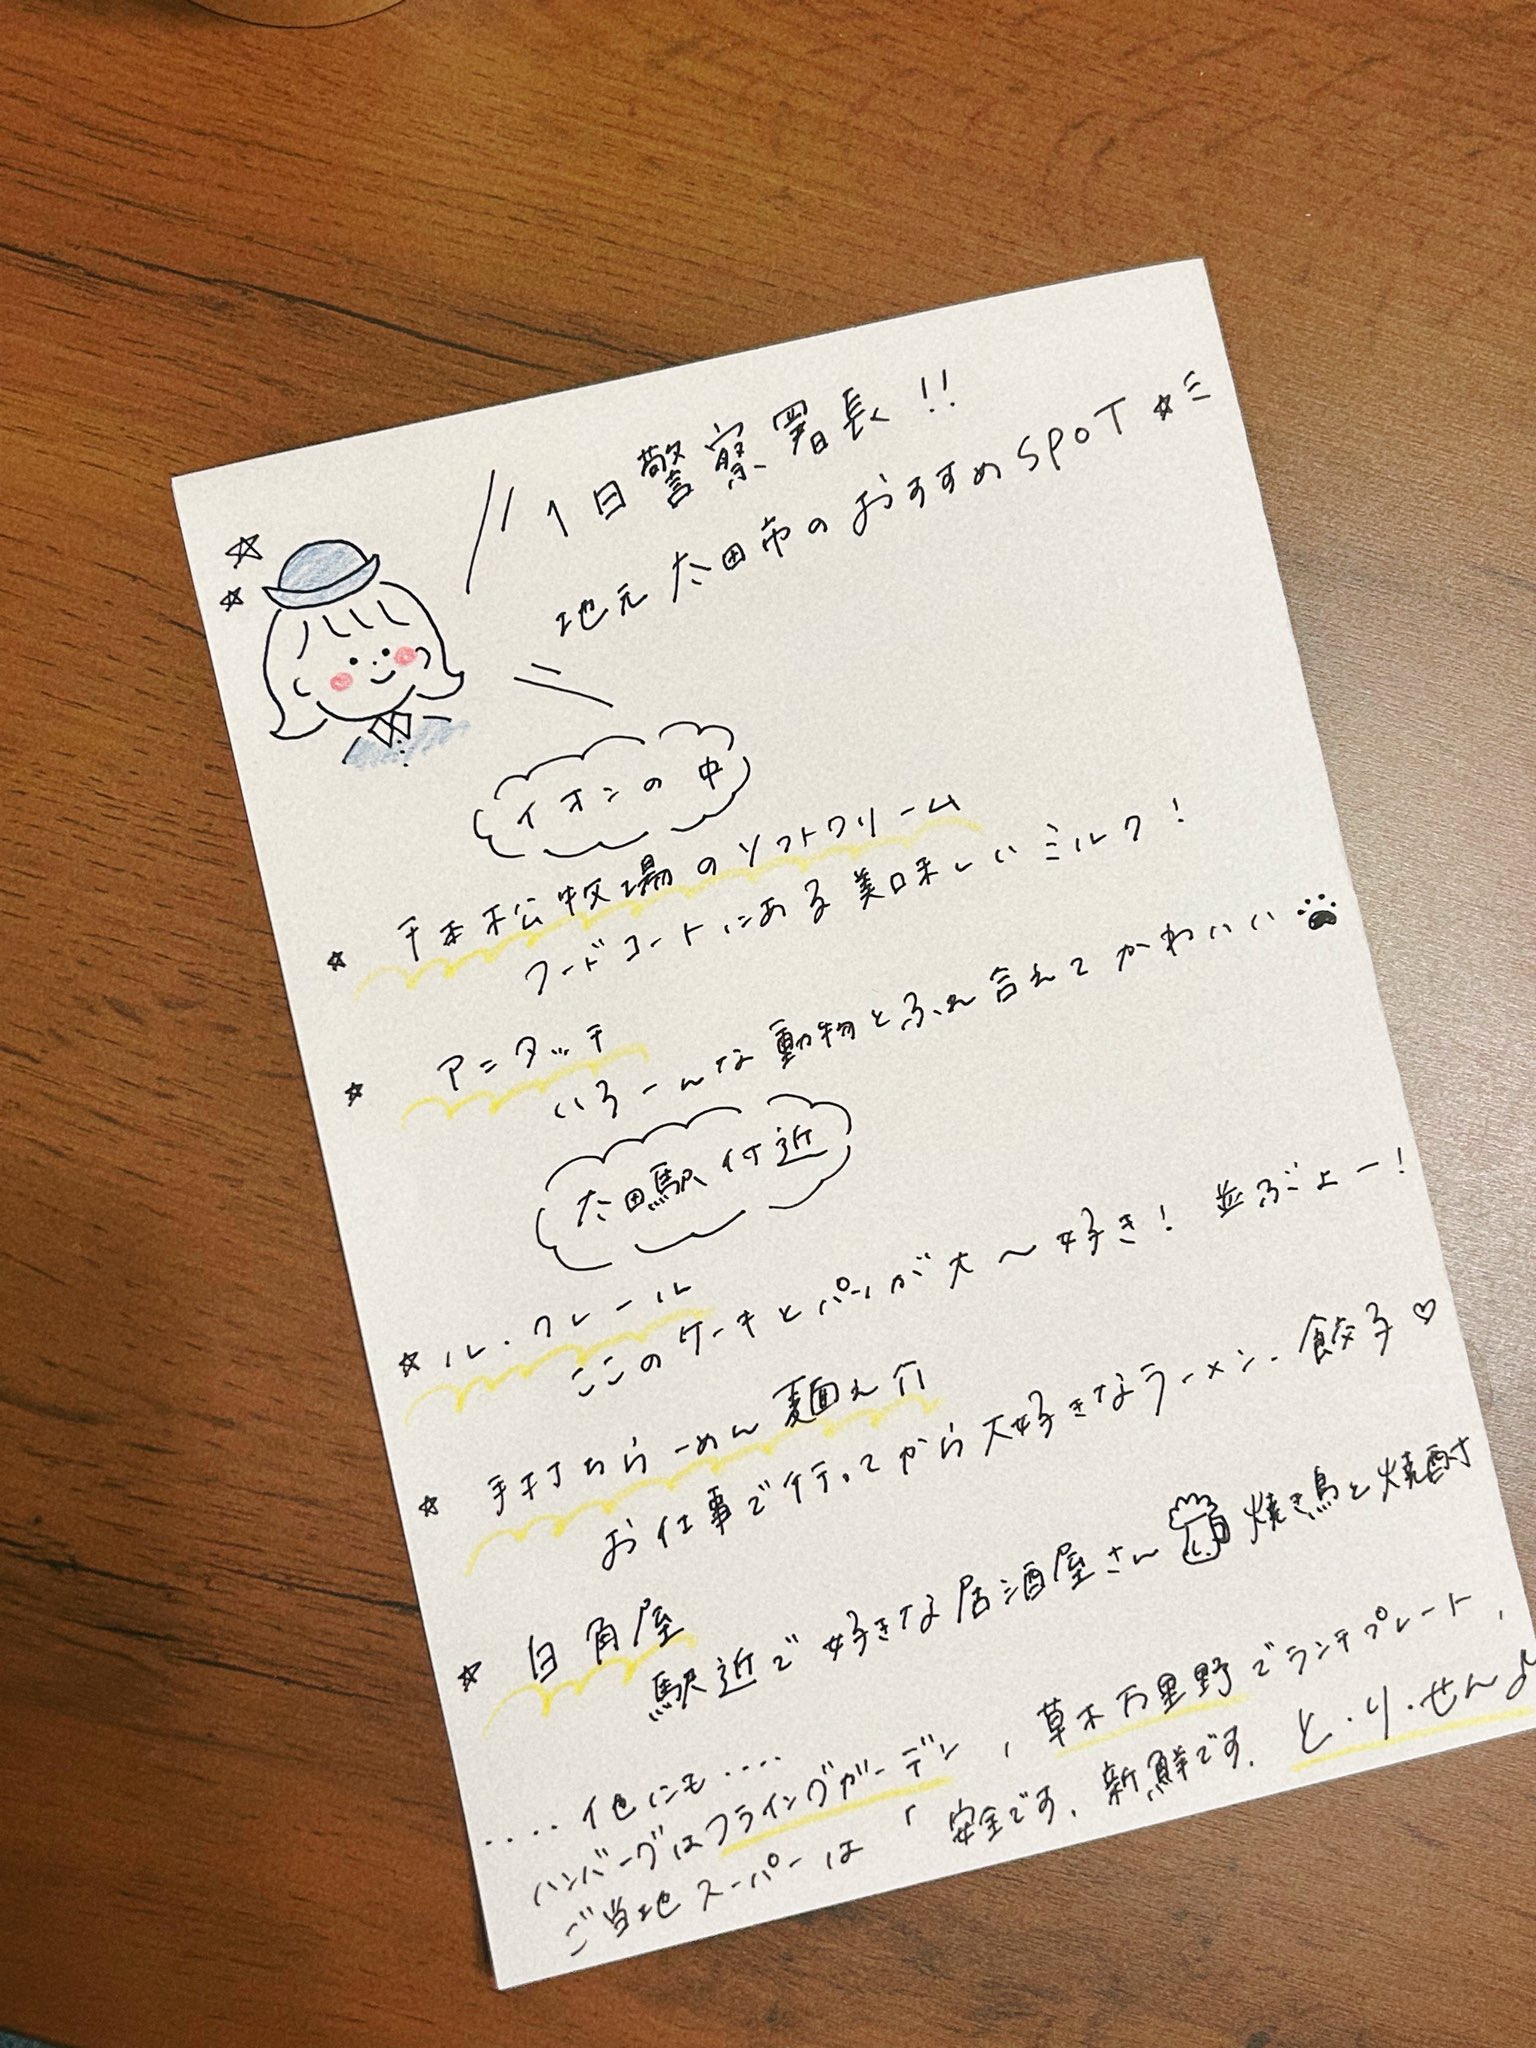 1日警察署長!!
地元 太田市のおすすめSPOT☆
イオンの中
☆ 千本松牧場のソフトクリーム
フードコートにある美味しいミルク!
☆ アニタッチ
いろーんな動物とふれ合えてかわいい
太田駅付近
☆ ル・クレール
ここのケーキとパンが大〜好き! 並ぶよー!
☆ 手打ちらーめん 麺え介
お仕事で行ってから大好きなラーメン、餃子♡
☆ 白角屋
駅近で好きな居酒屋さん 焼き鳥と焼酎
....他にも....
ハンバーグはフライングガーデン、草木万里野でランチプレート、
ご当地スーパーは「安全です、新鮮です、と・り・せん♪